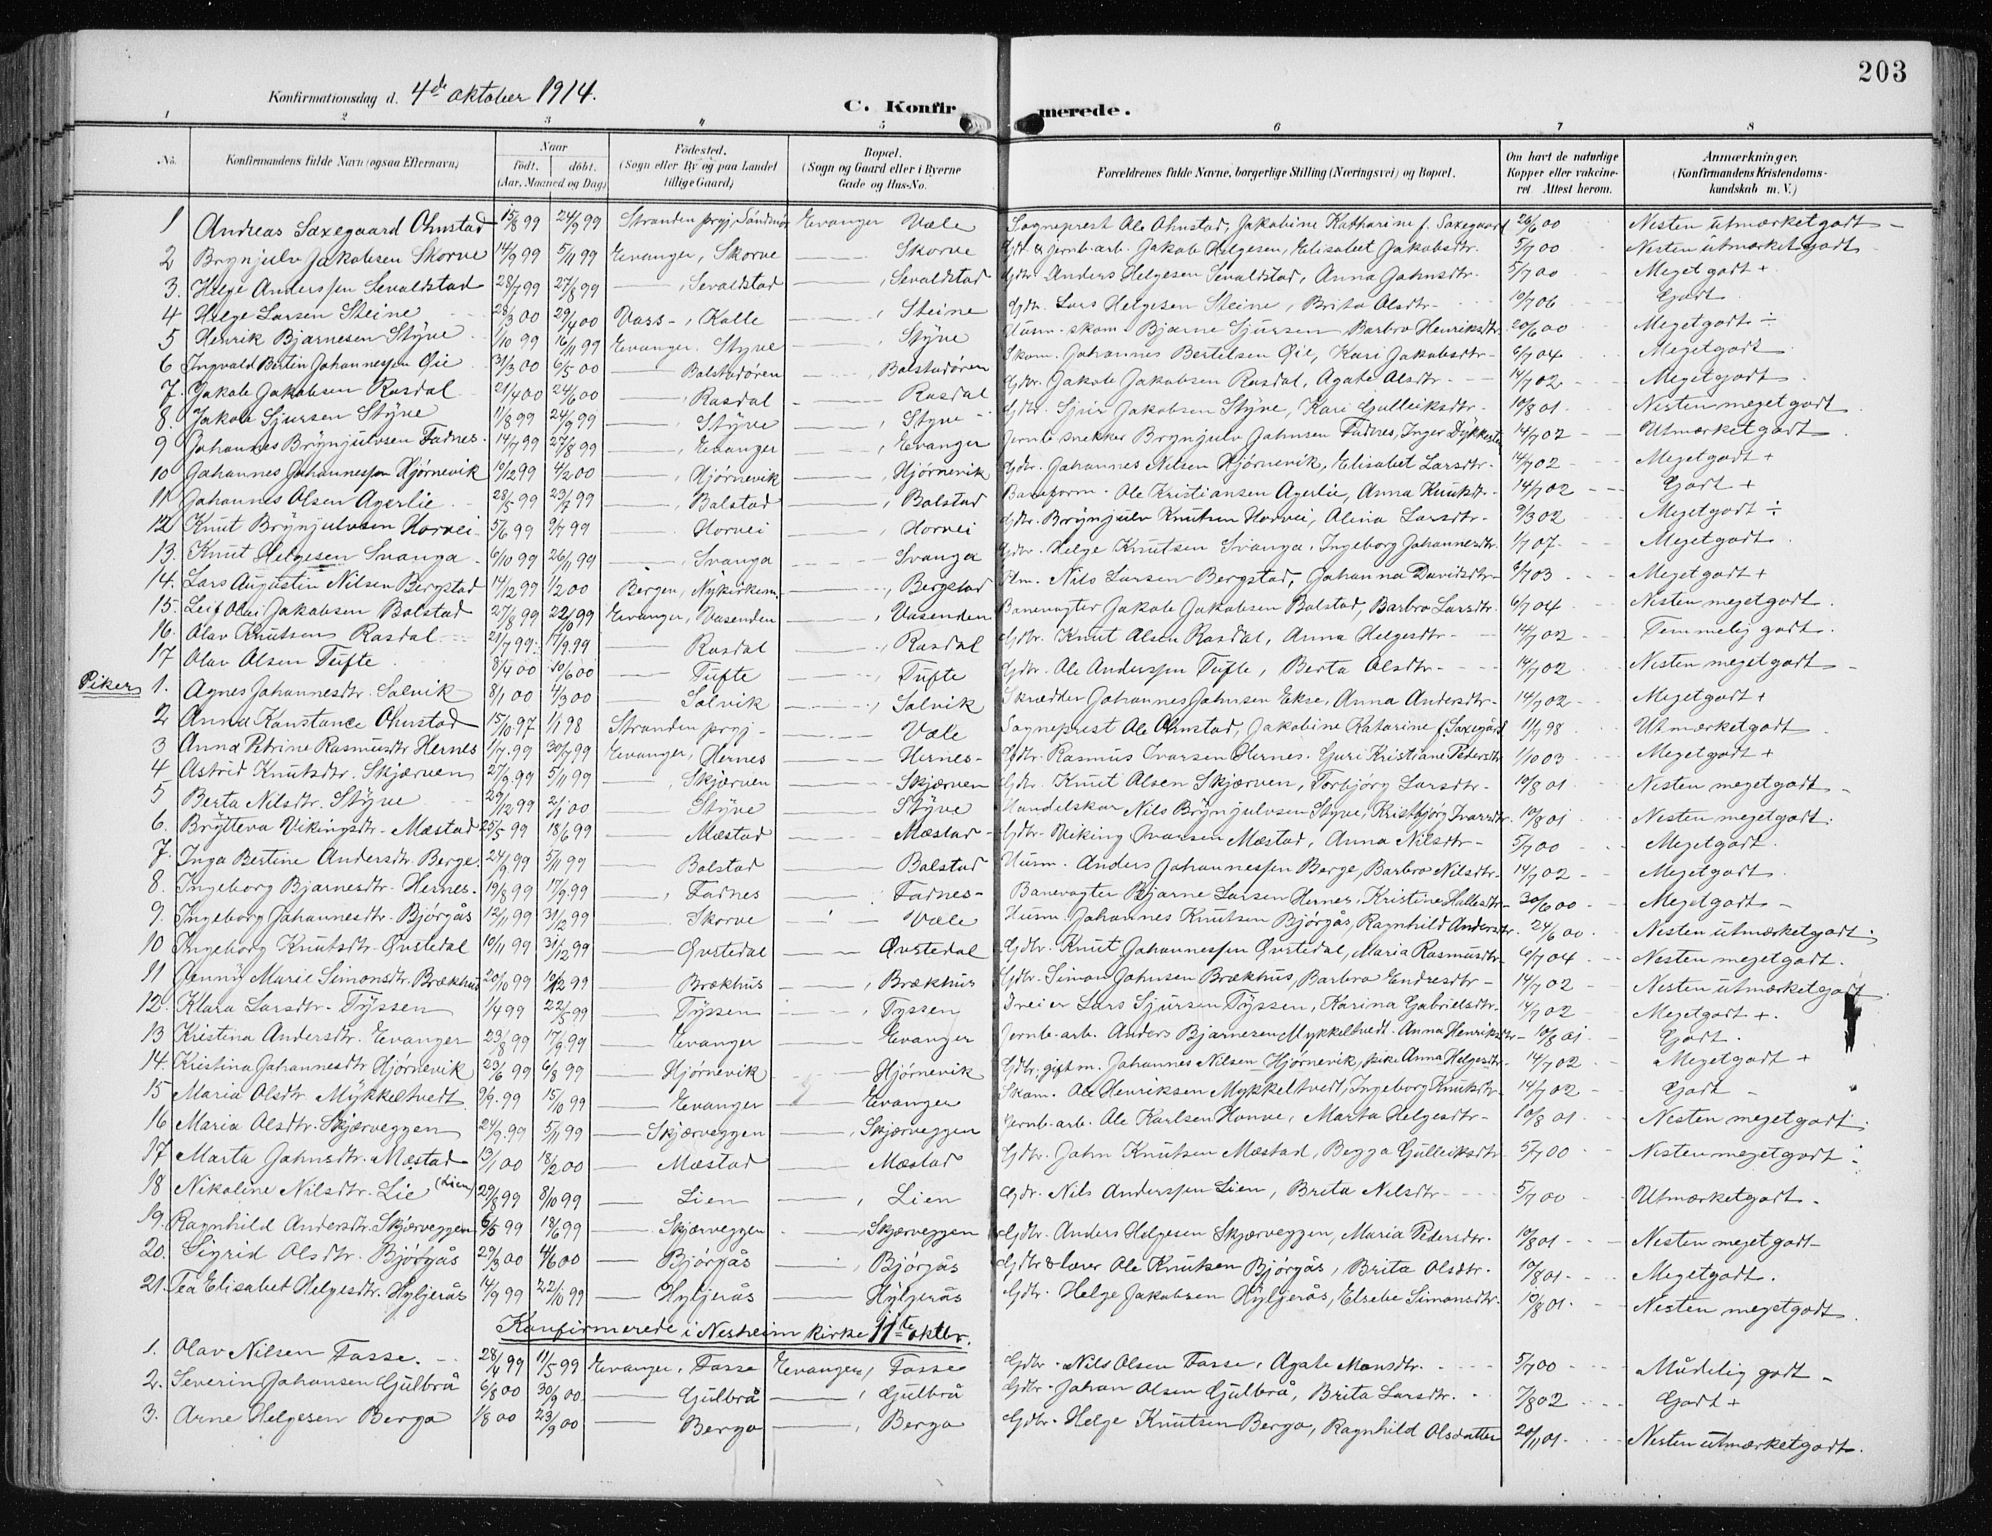 203
Konfirmationsdag d. 4de oktober 1914.
C. Konfirmerede.
1 2 3 4 5 6 7 8
No. Konfirmandens fulde Navn (ogsaa Efternavn) Naar født. døbt. (Aar, Maaned og Dag) Fødested. (Sogn eller By og paa Landet tillige Gaard) Bopæl. (Sogn og Gaard eller i Byerne Gade og Hus-No. Forældrenes fulde Navne, borgerlige Stilling (Næringsvei) og Bopæl. Om havt de naturlige Kopper eller vaccineret. Attest herom. Anmærkninger. (Konfirmandens Kristendomskundskab m. V.)
1 Andreas Saxegaard Ohnstad 15/8 99 24/9 99 Stranden prgj, Søndmør Evanger Væle Sogneprest Ole Ohnstad, Jakobine Katharine f. Saxegaard 26/6 00 Nesten utmærketgodt -
2 Brynjulv Jakobsen Skorve 14/9 99 5/11 99 Evanger, Skorve — Skorve Gdr & jernb.arb. Jakob Helgesen, Elisabet Jakobsdtr. 5/7 00 Nesten utmærketgodt
3. Helge Anderssen Sevaldstad 28/7 99 27/8 99 — , Sevaldstad — , Sevaldstad Gdbr. Anders Helgesen Sevaldstad, Anna Johnsdtr. 5/7 00 Meget godt +
4 Helge Larsen Steine 28/3 00 29/4 00 Voss -, Kolle — , Steine Gdbr. Lars Helgesen Steine, Brita Olsdtr- 10/7 06 Godt
5 Henrik Bjarnesen Styve 1/10 99 16/11 99 Evanger, Styve — , Styve Husm. skom. Bjarne Sjursen Barbro Henriksdtr 20/6 00 Megetgodt ÷
6 Ingvald Bertin Johannessen Øie 31/3 00 6/5 00 — Bolstadøren — Bolstadøren Skom. Johannes Bertilsen Øie, Kari Jakobsdtr- 6/7 04 Megetgodt
7. Jakob Jakobsen Rasdal 21/4 00 24/6 00 — , Rasdal — Rasdal Gdbr. Jakob Jakobsen Rasdal, Agate Olsdtr - 14/7 02 Megetgodt
8. Jakob Sjursen Styve 11/8 99 24/9 99 — , Styve — , Styve Gdbr. Sjur Jakobsen Styve, Kari Gulleiksdtr- 10/8 01 Nesten megetgodt
9 Johannes Brynjulvsen Fadnes. 14/7 99 27/8 99 — , Evanger — , Evanger Jernb. snekker Brynjulv Johnsen Fadnes, Inger 14/7 02 Utmærketgodt
10 Johannes Johannessen Hjørnevik 10/12 99 4/2 00 — , Hjørnevik — , Hjørnevik Gdbr. Johannes Nilsen Hjørnevik, Elisabet Larsdtr- 14/7 02 Megetgodt +
11 Johannes Olsen Agerlie 28/5 99 23/7 99 — , Bolstad — , Bolstad Baneform. Ole Kristiansen Agerlie, Anna Knutsdtr- 14/7 02 Godt +
12. Knut Brynjulvsen Horvei. 5/6 99 9/7 99 — Horvei — , Horvei Gdbr. Brynjulv Knutsen Horvei, Alina Larsdtr- 9/3 02 Megetgodt ÷
13. Knut Helgesen Svanga 6/10 99 26/11 99 — , Svanga — Svanga Gdbr. Helge Knutsen Svanga, Ingeborg Johannesdtr 1/7 07. Megetgodt
14. Lars Augustin Nilsen Bergstad 14/12 99 1/2 00 Bergen, Nykirken — , Bergstad Nils Larsen Bergstad, Johanna Davidsdtr- 6/7 03 Megetgodt +
15. Leif Olai Jakobsen Bolstad 27/8 99 22/10 99 Evanger, Vasenden — , Vasenden Banevogter Jakob Jakobsen Bolstad, Barbro Larsdtr. 6/7 04 Nesten megetgodt
16. Olav Knutsen Rasdal 21/7 99 17/9 99 — Rasdal — , Rasdal Gdbr. Knut Olsen Rasdal, Anna Helgesdtr - 14/7 02 Temmelig godt.
17 Olav Olsen Tufte 8/4 00 10/6 00 — Tufte — , Tufte Gdbr. Ole Anderssen Tufte, Berta Olsdtr- 14/7 02 Nesten megetgodt
Piker 1. Agnes Johannesdtr. Solvik 8/1 00 4/3 00 — Solvik — , Solvik Skrædder Johannes Johnsen Ekse, Anna Andersdtr- 14/7 02 Megetgodt +
2 Anna Konstance Ohnstad 15/10 97 1/1 98 Stranden prgj - — Væle Sogneprest Ole Ohnstad, Jakobine Katarine f. Saxegård 11/7 98 Utmærketgodt
3 Anna Petrine Rasmusdtr Hernes 1/7 99 30/7 99 Evanger, Hernes — Hernes- Gdbr. Rasmus Ivarsen Hernes, Guri Kristiane Pedersdtr 1/10 03 Megetgodt +
4 Astrid Knutsdtr. Skjærven 27/9 99 5/11 99 — , Skjærven — Skjærven Gdr. Knut Olsen Skjærven, Torbjørg Larsdtr- 10/8 01 Nesten megetgodt
5 Berta Nilsdtr. Styve 29/12 99 2/1 00 — Styve — Styve Handelskar Nils Brynjulvsen Styve, Kristbjørg Ivarsdtr. 10/8 01 Nesten megetgodt
6. Brytteva Vikingsdtr- Mæstad 25/5 99 18/6 99 — , Mæstad — Mæstad- Gdbr. Viking Ivarsen Mæstad, Anna Nilsdtr- 5/7 00 Nesten megetgodt.
7. Inga Bertine Andersdtr. Berge 24/9 99 5/11 99 — Bolstad — Bolstad Husm. Anders Johannessen Berge, Barbro Nilsdtr. 14/7 02 Megetgodt
8. Ingeborg Bjarnesdtr- Hernes- 19/8 99 17/9 99 — , Fadnes — , Fadnes- Banevogter Bjarne Larsen Hernes, Kristine Hallesdtr- 30/6 00 Megetgodt
9. Ingeborg Johannesdtr- Bjørgås 12/11 99 31/12 99 — Skorve — Væle Husm. Johannes Knutsen Bjørgås, Ragnhild Andersdtr 24/6 00 Megetgodt -
10 Ingeborg Knutsdtr- Øvstedal 19/11 99 31/12 99 — Øvstedal — Øvstedal Gdbr. Knut Johannessen Øvstedal, Maria Rasmusdtr- 6/7 04 Nesten utmærketgodt.
11 Jenny Marie Simonsdtr. Brækhus 20/10 99 10/12 99 — Brækhus — , Brækhus Gdbr. Simon Johnsen Brækhus, Barbro Endresdtr - 14/7 02 Nesten megetgodt.
12. Klara Larsdtr- Tyssen 1/4 99 22/5 99 — Tyssen — , Tyssen Lars Sjursen Tyssen, Karina Gabrielsdtr. 14/7 02 Nesten utmærketgodt
13 Kristina Andersdtr. Evanger 23/8 99 17/9 99 — Evanger — Evanger Jernb.arb. Anders Bjarnesen Mykkeltvedt, Anna Henriksdtr- 10/8 01 Megetgodt +.
14. Kristina Johannesdtr Hjørnevik 23/6 99 6/8 99 — Hjørnevik — Hjørnevik Gdbr. gift m. Johannes Nilsen Hjørnevik, pike Anna Helgesdtr- 14/7 02 Godt.
15 Maria Olsdtr. Mykkeltvedt 9/9 99 15/10 99 — Evanger — Evanger Skom. Ole Henriksen Mykkeltvedt, Ingeborg Knutsdtr- 14/7 02 Megetgodt +
16 Maria Olsdtr. Skjærveggen 24/9 99 5/11 99 — Skjærveggen — , Skjærveggen Jernb.arb. Ole Karlsen Honve, Marta Helgesdtr- 10/8 01 Godt -
17 Marta Johnsdtr. Mæstad 13/1 00 18/2 00 — Mæstad — , Mæstad Gdbr. John Knutsen Mæstad, Begga Gulleiksdtr 5/7 00 Nesten megetgodt.
18 Nikoline Nilsdtr. Lie (Lien) 29/8 99 8/10 99 — Lien — , Lien Gdr. Nils Anderssen Lien, Brita Nilsdtr- 5/7 00 Nesten megetgodt
19. Ragnhild Andersdtr. Skjørveggen 6/5 99 18/6 99 — Skjærveggen — Skjærveggen Gdbr. Anders Helgesen Skjærveggen, Maria Pedersdtr. 10/8 01 Utmærketgodt.
20. Sigrid Olsdtr. Bjørgås 29/3 00 4/6 00 — Bjørgås — , Bjørgås Gdbr & lærer Ole Knutsen Bjørgås, Brita Olsdtr. 10/8 01 Nesten megetgodt-
21. Tea Elisabet Helgesdtr. Hyljerås 14/9 99 22/10 99 — Hyljerås — Hyljerås Gdbr. Helge Jakobsen Hyljerås, Elsebe Simonsdtr. 10/8 01 Megetgodt.
Nesten megetgodt
Konfirmerede i Nesheim kirke 11te oktbr.
1. Olav Nilsen Fasse. 28/4 99 11/5 99 Evanger, Fasse Evanger, Fasse Gdbr. Nils Olsen Fasse, Agate Monsdtr. 5/7 00 Mudelig godt -
2. Severin Johansen Gulbrå 6/8 00 30/9 00 — Gulbrå — , Gulbrå Gdbr. Johan Olsen Gulbrå, Brita Larsdtr. 7/8 02 Godt +
3. Arne Helgesen Bergo 1/8 00 23/9 00 — Bergo — , Bergo Gdbr. Helge Knutsen Bergo, Ragnhild Olsdatter 20/11 01 Nesten utmærketgodt.